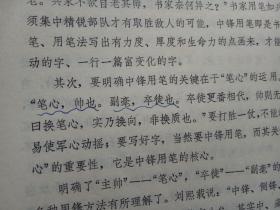 名。兵家不欲自老其师，书家奈何异之？"书家用笔如兵
须集中精锐部队才有取胜敌人的可能，中锋用笔即是中
笔、用笔法写出有力度、厚度和生命力的点画来，才能
动的字、一行一篇富变化的字。
其次，要明确中锋用笔的关键在于"笔心"的运用。
"笔心，帅也。副毫，卒徒也。卒徒更番相代，帅则无
曰换笔心，实乃换向，非换质也。"要打胜一仗，不能
易使军心动摇；要写好字，当然要中锋用笔，而其关
心"的重要性，它是中锋用笔的核心。
明确了"主帅"——"笔心"，"卒徒"——"副毫"的
各种用锋方法有所理解了。刘熙载说："中锋、侧锋、